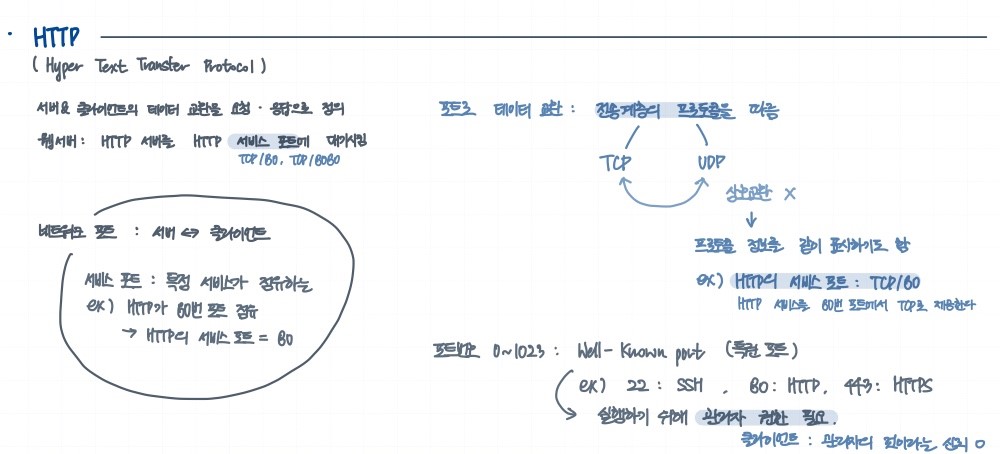 · HTTP
( Hyper Text Transfer Protocol )
서버와 클라이언트의 데이터 교환을 요청 · 응답으로 정의
웹서버 : HTTP 서버를 HTTP 서비스 포트에 대기시킴
TCP/80, TCP/8080
네트워크 포트 : 서버 ↔ 클라이언트
서비스 포트 : 특정 서비스가 점유하는
ex) HTTP가 80번 포트 점유
→ HTTP의 서비스 포트 = 80
포트로 데이터 교환 : 전송계층의 프로토콜을 따름
TCP UDP
상호교환 X
↓
프로토콜 정보를 같이 표시하기도 함
ex) HTTP의 서비스 포트 : TCP/80
HTTP 서비스를 80번 포트에서 TCP로 제공한다
포트번호 0~1023 : Well-Known port (특권 포트)
ex) 22 : SSH , 80 : HTTP, 443 : HTTPS
실행하기 위해 관리자 권한 필요.
클라이언트 : 관리자의 것이라는 신뢰 O